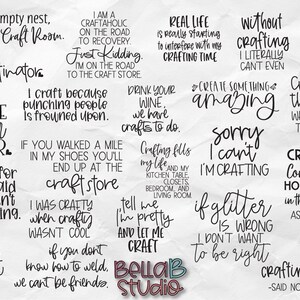 mpty nest,
Craft Room.
I AM A
CRAFTAHOLIC
ON THE ROAD
TO RECOVERY.
Just Kidding.
I'M ON THE ROAD
TO THE CRAFT STORE.
REAL LIFE
is really starting
to interfere with my
CRAFTING TIME
without
crafting
I LITERALLY
CAN'T EVEN
tinator
I craft because
punching people
is frowned upon.
DRINK YOUR
WINE,
we have
crafts to do.
CREATE SOMETHING
amazing
IF YOU WALKED A MILE
IN MY SHOES YOU'LL
END UP AT THE
craft store
Crafting fills
my life
AND MY
KITCHEN TABLE,
CLOSETS,
BEDROOM, AND
LIVING ROOM.
sorry
I can't
I'M CRAFTING
I WAS CRAFTY
when crafty
WASN'T COOL
tell me
I'm pretty
AND LET ME
CRAFT
if glitter
IS WRONG
I DON'T WANT
to be right
if you don't
know how to weld,
we can't be friends.
BellaB
Studio
crafting
-SAID NO